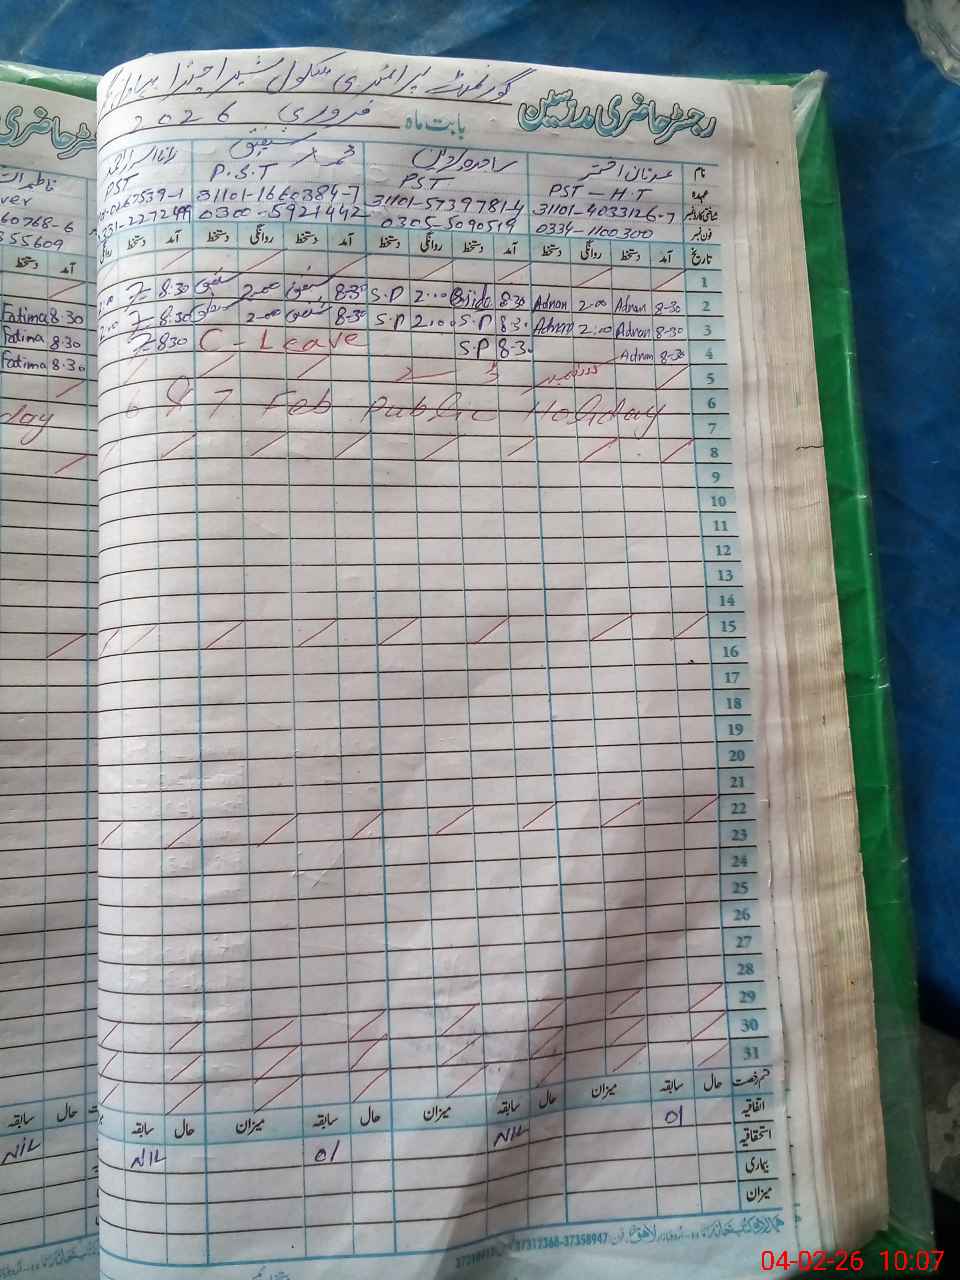 گورنمنٹ پرائمری سکول
رجسٹر حاضری مدرسین
بابت ماہ فروری 2026
نام عدنان اختر محمد شفیق
عہدہ PST - H.T PST P.S.T PST
31101-4033126-7 31101-5739781-4 31101-1660384-7
فون نمبر 0334-1100300 0305-5090519 0300-5921442
تاریخ آمد دستخط روانگی دستخط آمد دستخط روانگی دستخط آمد دستخط روانگی دستخط آمد دستخط روانگی
1
2 8-30 Adnan 2:00 Adnan 8.30 Sajida 2:00 S.P 8-30 شفیق 2-00 شفیق 8.30
3 8-30 Adnan 2:00 Adnan 8.30 S.P 2:00 S.P 8-30 شفیق 2-00 شفیق 8.30
4 8-30 Adnan 8-30 S.P C-Leave 830
5
6 6 & 7 Feb Public Holiday
7
8
9
10
11
12
13
14
15
16
17
18
19
20
21
22
23
24
25
26
27
28
29
30
31
قسم رخصت حال سابقہ میزان حال سابقہ میزان حال سابقہ میزان حال سابقہ
اتفاقیہ 01 NIL 01 NIL
استحقاقیہ
بیماری
میزان
37312368-37358947
رجسٹر حاضری
60768-6
355609
آمد دستخط
8.30 Fatima
8.30 Fatima
8.30 Fatima
حال سابقہ
NIL
04-02-26 10:07